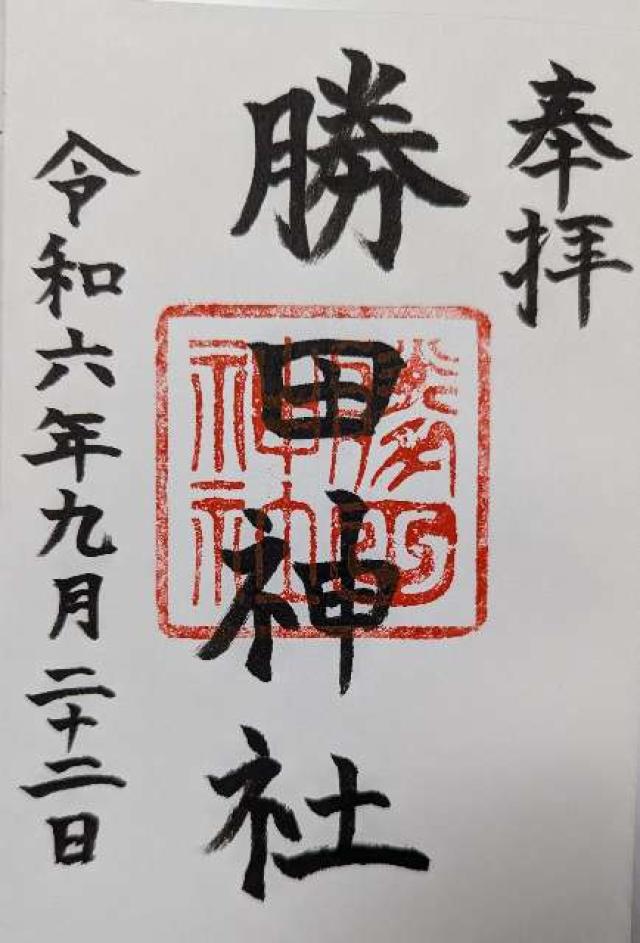 奉拝
勝田神社
令和六年九月二十二日